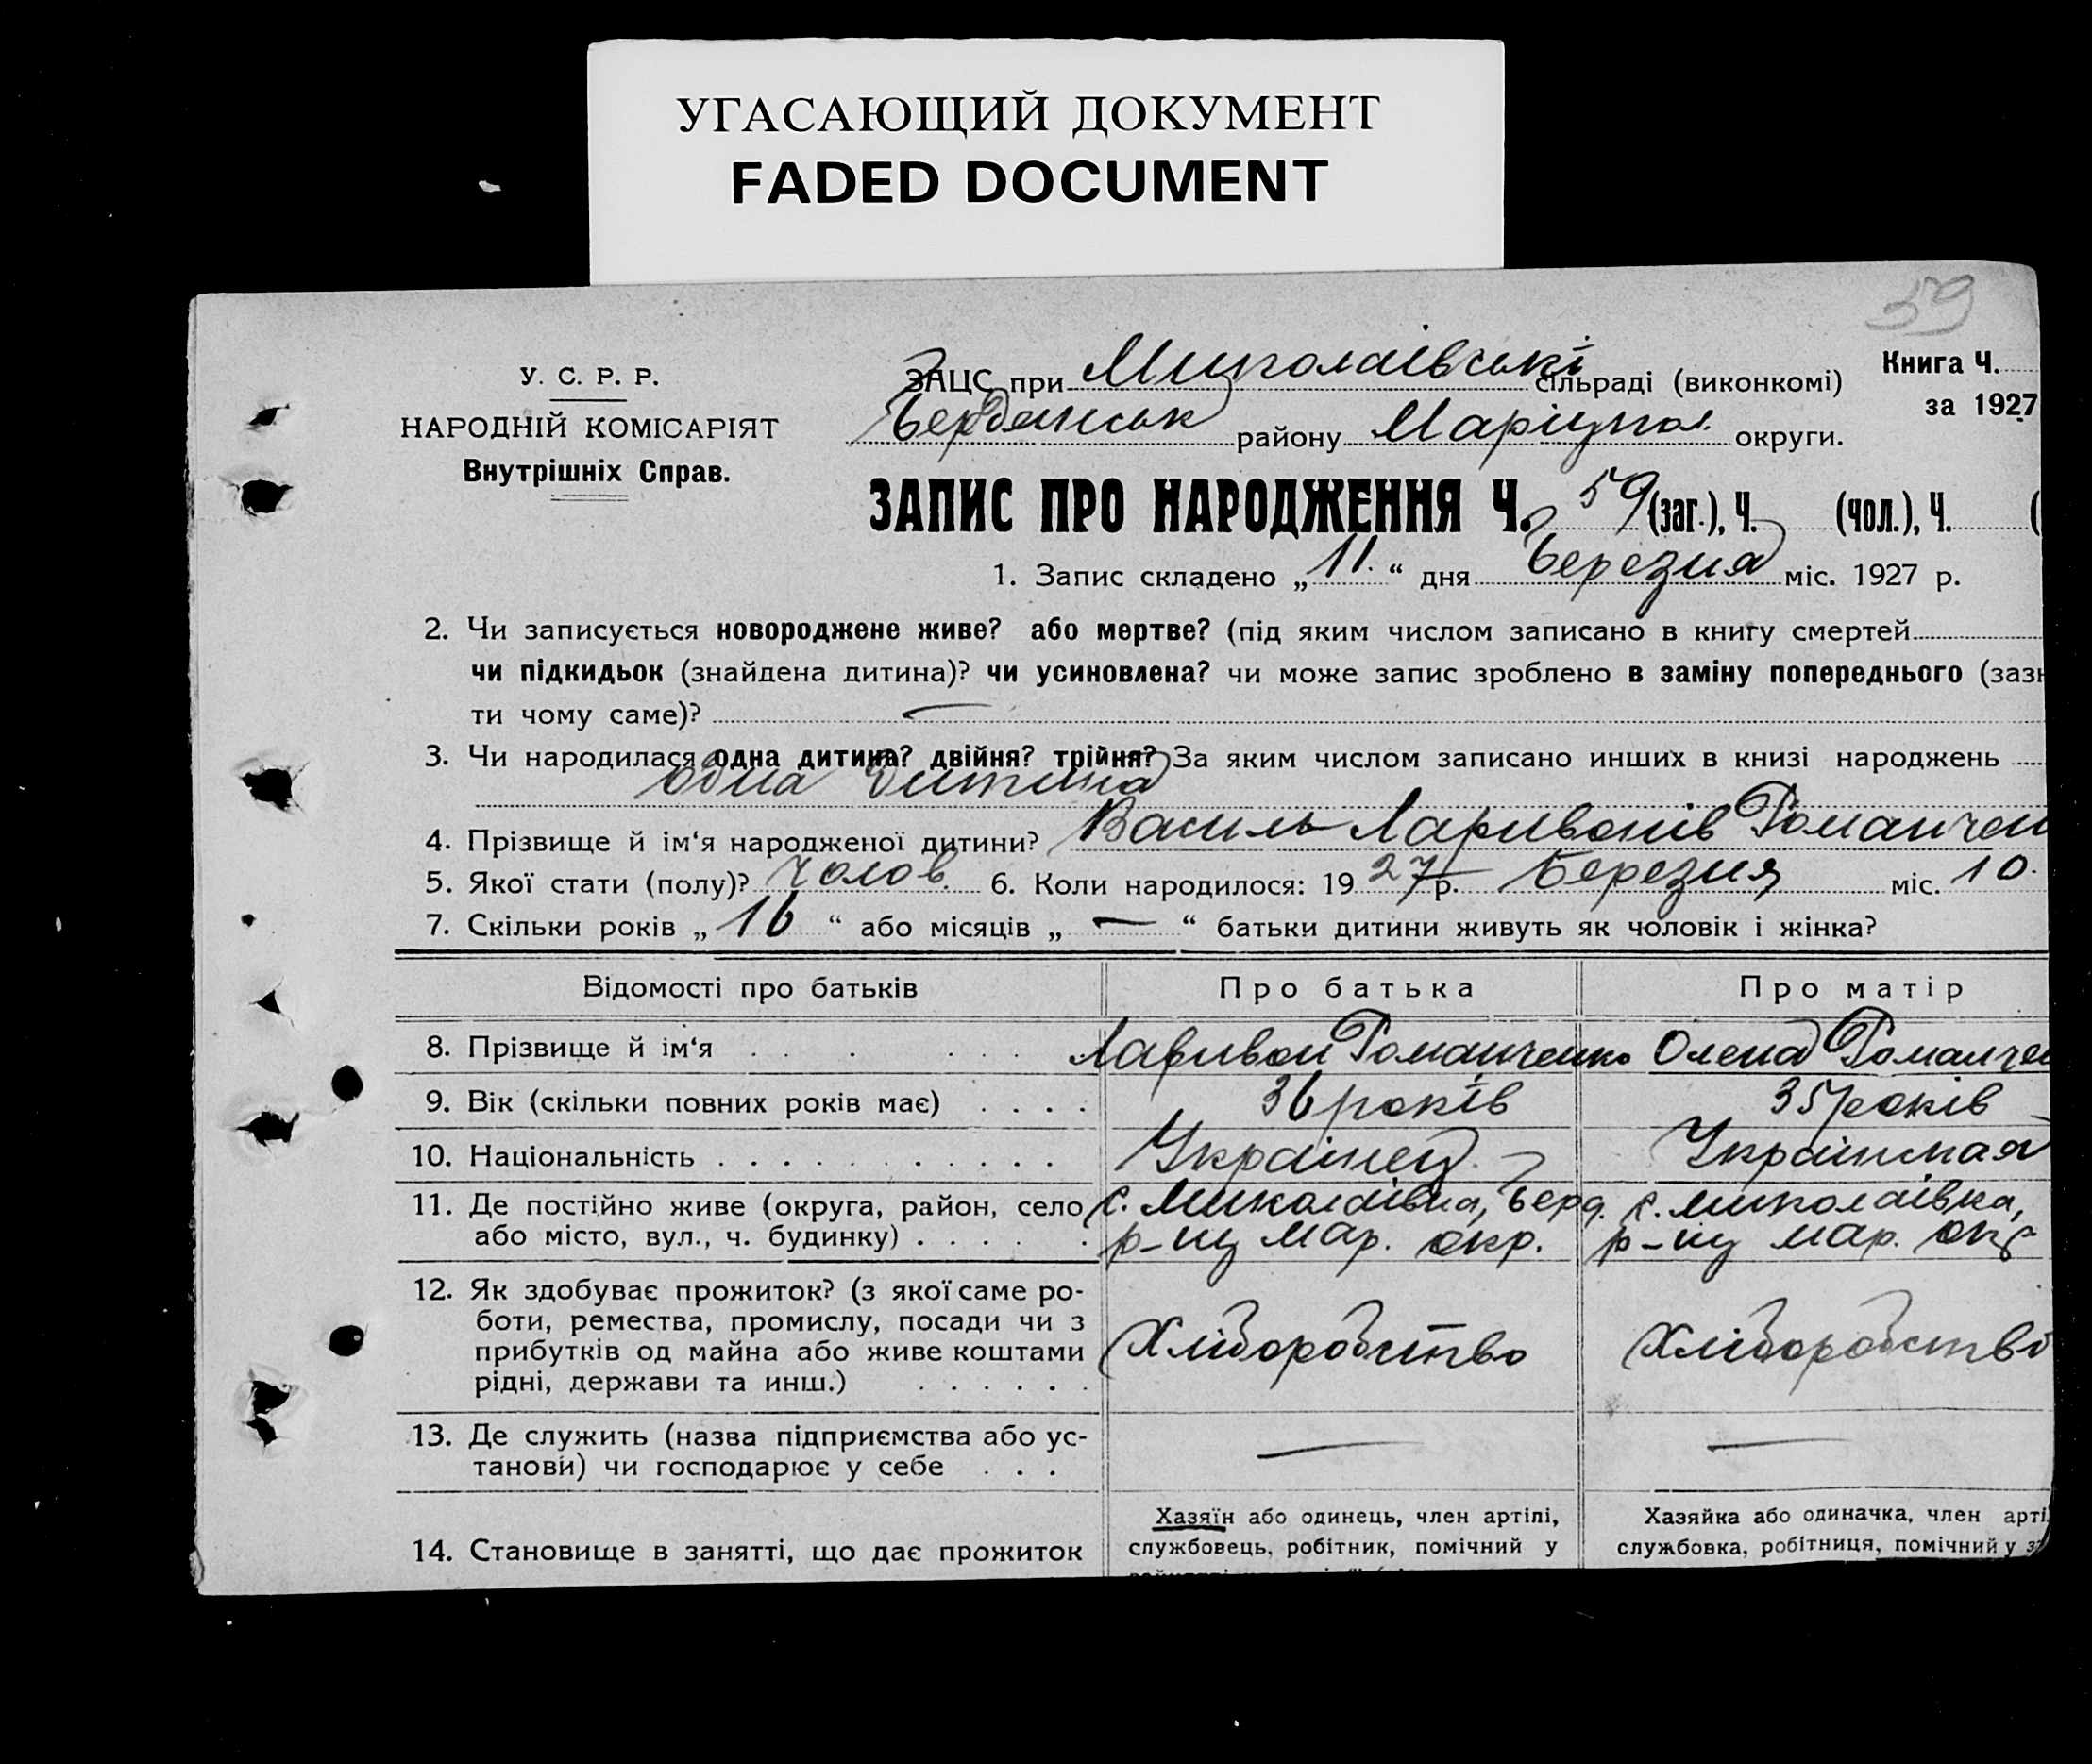 УГАСАЮЩИЙ ДОКУМЕНТ
FADED DOCUMENT
59
У. С. Р. Р.
НАРОДНІЙ КОМІСАРІЯТ
Внутрішніх Справ.
ЗАЦС при Миколаівські сільраді (виконкомі)
Бердянськ району Маріупол. округи.
Книга Ч.
за 1927
ЗАПИС ПРО НАРОДЖЕННЯ Ч. 59 (заг.), Ч. (чол.), Ч. (
1. Запис складено „ 11. “ дня Березня міс. 1927 р.
2. Чи записується новороджене живе? або мертве? (під яким числом записано в книгу смертей
чи підкидьок (знайдена дитина)? чи усиновлена? чи може запис зроблено в заміну попереднього (зазн
ти чому саме)? —
3. Чи народилася одна дитина? двійня? трійня? За яким числом записано инших в книзі народжень
одна дитина
4. Прізвище й ім‘я народженої дитини? Василь Ларивонів Романчен
5. Якої стати (полу)? Чолов. 6. Коли народилося: 19 27 р. Березня міс. 10.
7. Скільки років „ 16 “ або місяців „ — “ батьки дитини живуть як чоловік і жінка?
Відомості про батьків Про батька Про матір
8. Прізвище й ім‘я Ларивон Романченко Олена Романчен
9. Вік (скільки повних років має) 36 років 35 років
10. Національність Украінец Украінская
11. Де постійно живе (округа, район, село с. Миколаівка, Берд. с. Миколаівка,
або місто, вул., ч. будинку) р-ну Мар. окр. р-ну Мар. окр
12. Як здобуває прожиток? (з якої саме ро-
боти, ремества, промислу, посади чи з
прибутків од майна або живе коштами
рідні, держави та инш.)
Хліборобство Хліборобство
13. Де служить (назва підприємства або ус-
танови) чи господарює у себе
— —
14. Становище в занятті, що дає прожиток
Хазяїн або одинець, член артілі,
службовець, робітник, помічний у
Хазяйка або одиначка, член арті
службовка, робітниця, помічний у з